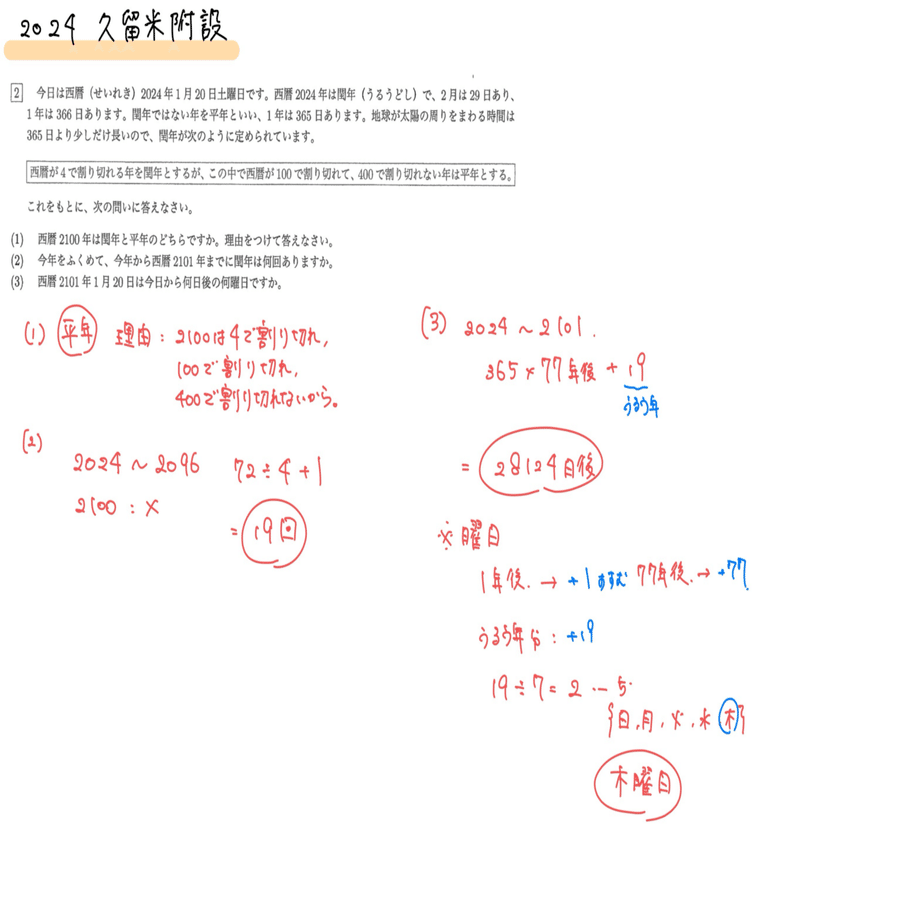 2024 久留米附設
2 今日は西暦（せいれき）2024年1月20日土曜日です。西暦2024年は閏年（うるうどし）で、2月は29日あり、
1年は366日あります。閏年ではない年を平年といい、1年は365日あります。地球が太陽の周りをまわる時間は
365日より少しだけ長いので、閏年が次のように定められています。
西暦が4で割り切れる年を閏年とするが、この中で西暦が100で割り切れて、400で割り切れない年は平年とする。
これをもとに、次の問いに答えなさい。
(1) 西暦2100年は閏年と平年のどちらですか。理由をつけて答えなさい。
(2) 今年をふくめて、今年から西暦2101年までに閏年は何回ありますか。
(3) 西暦2101年1月20日は今日から何日後の何曜日ですか。
(1) 平年 理由：2100は4で割り切れ,
100で割り切れ,
400で割り切れないから。
(2)
2024 ～ 2096 72÷4+1
2100 : ×
= 19回
(3) 2024 ～ 2101.
365×77年後 + 19
うるう年
= 28124日後
※曜日
1年後. → +1すすむ 77年後. → +77
うるう年分 : +19
19÷7= 2 … 5
{日,月,火,水,木}
木曜日